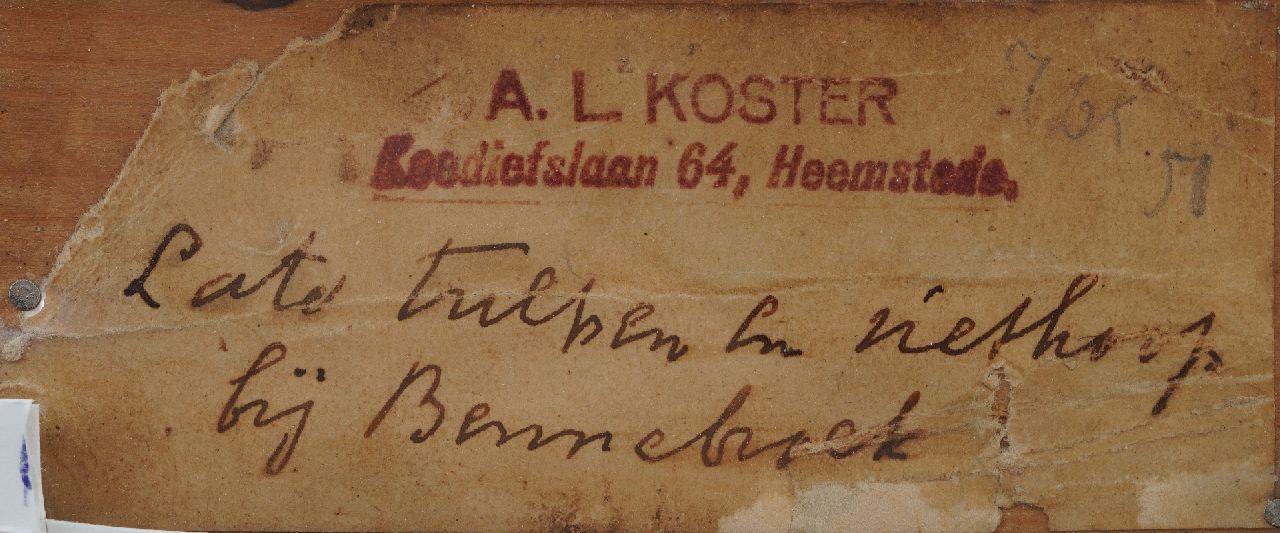 A. L. KOSTER
Koediefslaan 64, Heemstede.
Late tulpen en riethoop
bij Bennebroek
51